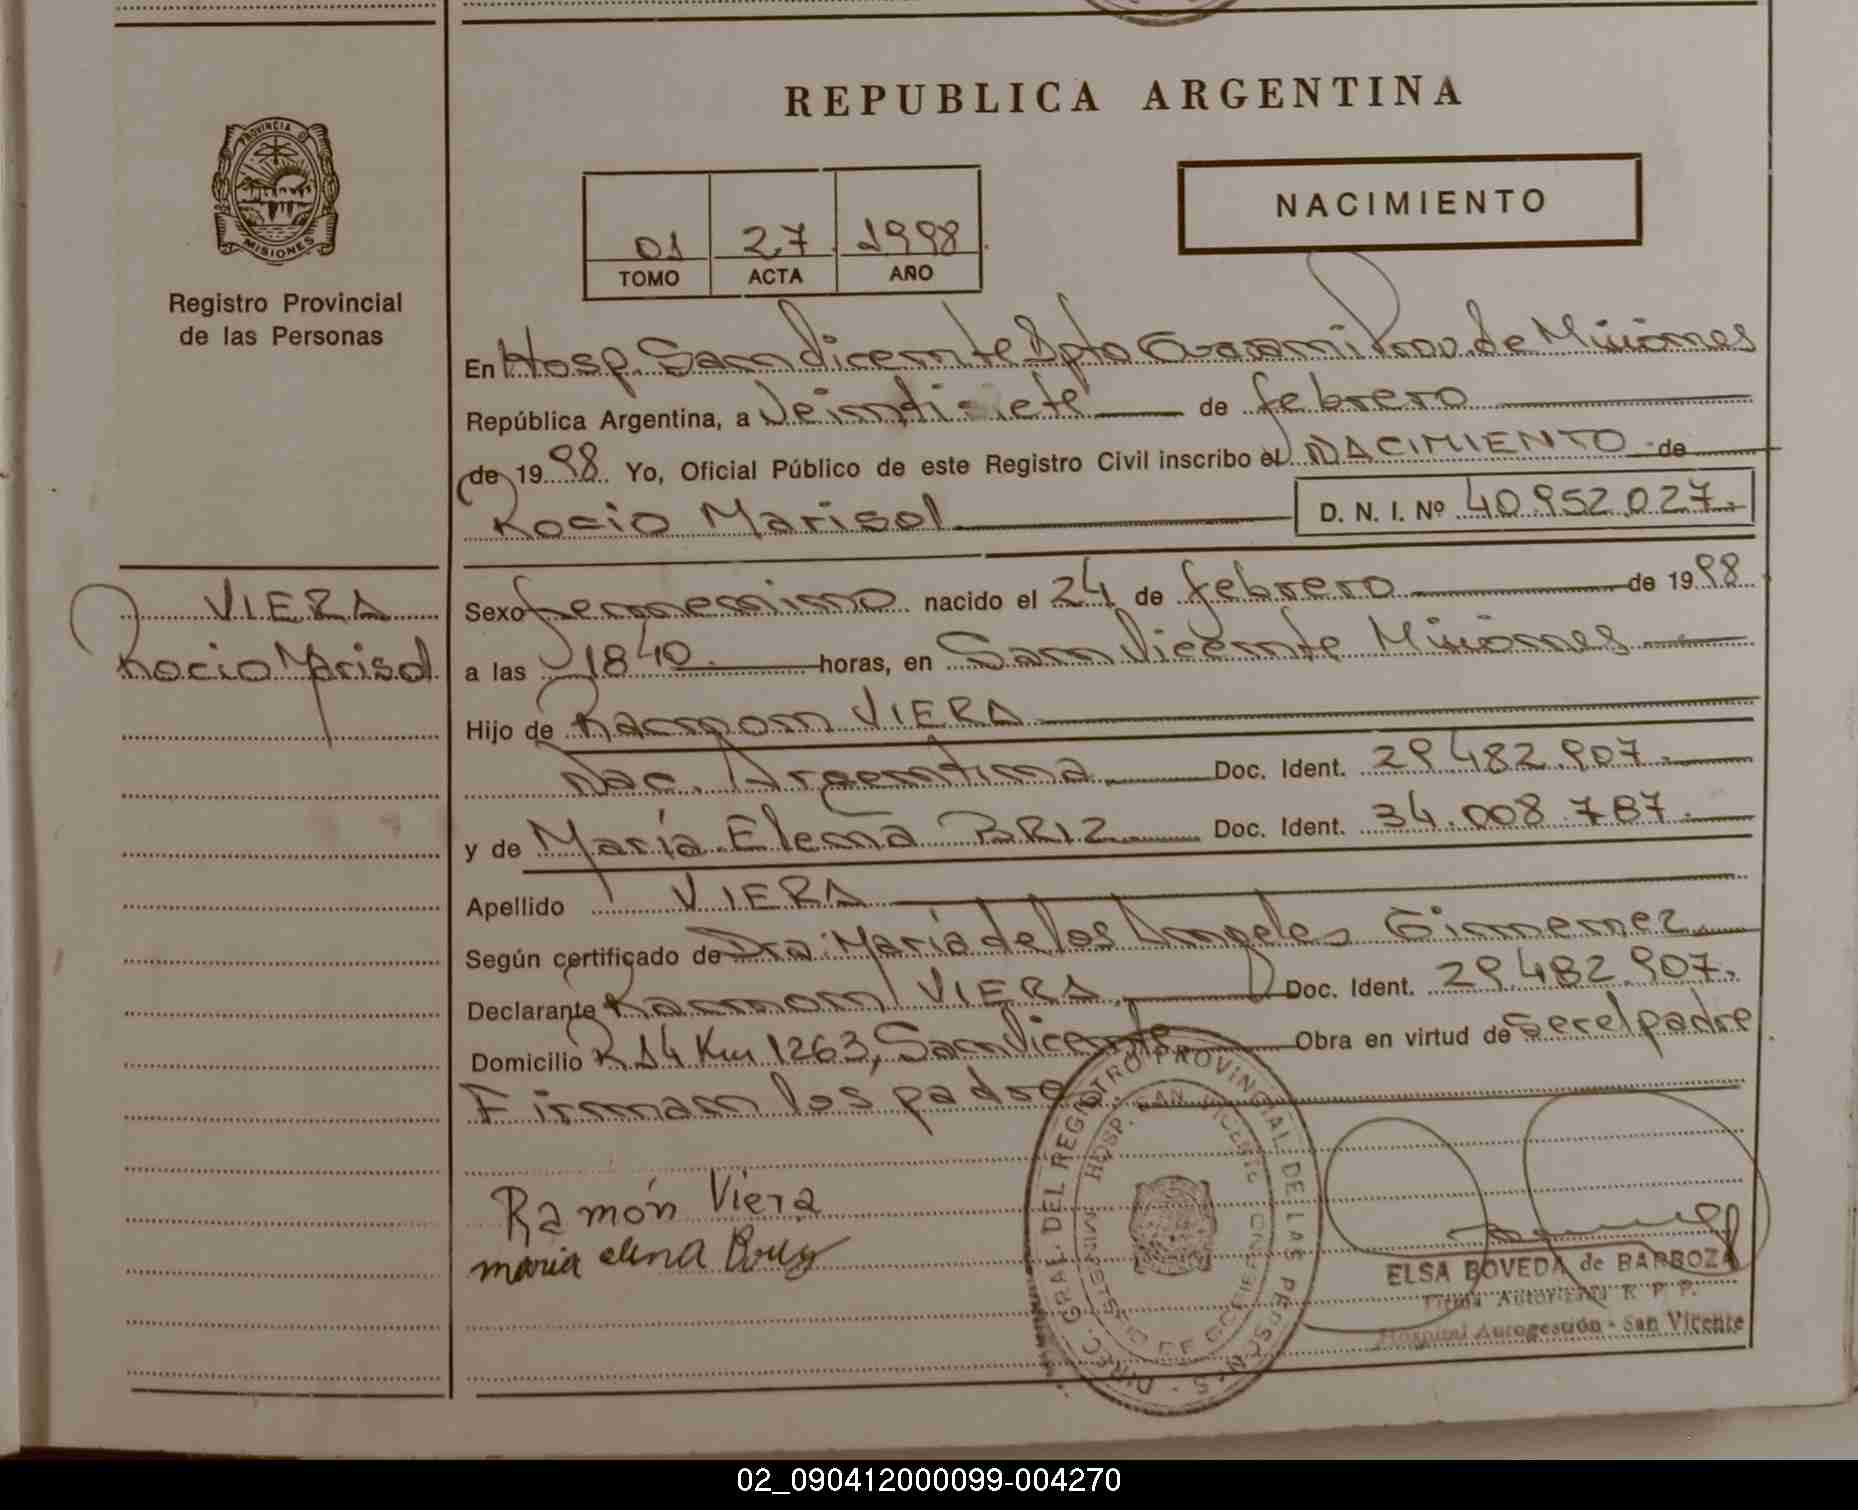 REPUBLICA ARGENTINA
PROVINCIA DE
MISIONES
Registro Provincial
de las Personas
01 27 1998
TOMO ACTA AÑO
NACIMIENTO
En Hosp. San Vicente Dpto Guarani Prov. de Misiones
República Argentina, a Veintisiete de febrero
de 1998 Yo, Oficial Público de este Registro Civil inscribo el NACIMIENTO de
Rocio Marisol D. N. I. Nº 40.952.027.
VIERA
Rocio Marisol
Sexo femenino nacido el 24 de febrero de 1998
a las 18 40 horas, en San Vicente Misiones
Hijo de Ramon VIERA
Nac. Argentina Doc. Ident. 29.482.907.
y de María Elena BRIZ Doc. Ident. 34.008.787.
Apellido VIERA
Según certificado de Dra. María de los Angeles Gimenez
Declarante Ramon VIERA, Doc. Ident. 29.482.907.
Domicilio R 14 Km 1263, San Vicente Obra en virtud de ser el padre
Firman los padres.
Ramón Viera
maria elena
DIREC. GRAL. DEL REGISTRO PROVINCIAL DE LAS PERSONAS
HOSP. SAN VICENTE
MINISTERIO DE GOBIERNO
ELSA BOVEDA de BARBOZA
Firma Autorizada R. P. P.
Hospital Autogestión - San Vicente
02_090412000099-004270